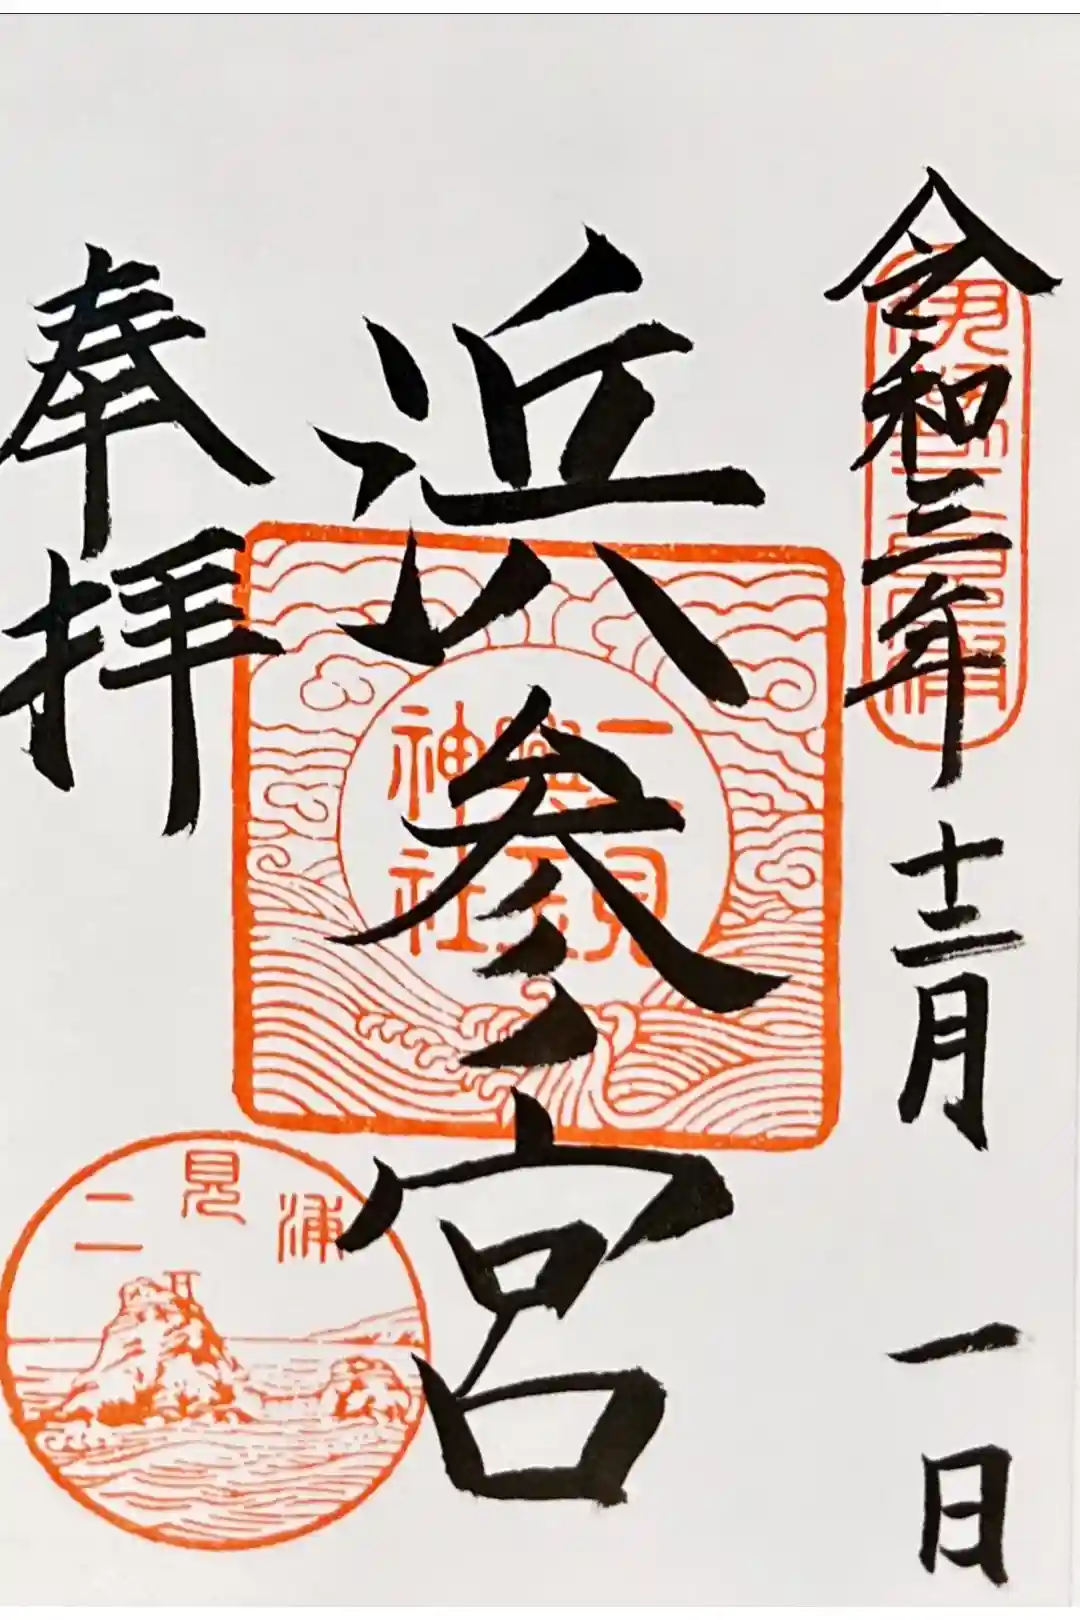 令和三年十二月一日
伊勢二見浦
浜参宮
二見
興玉
神社
奉拝
二見浦